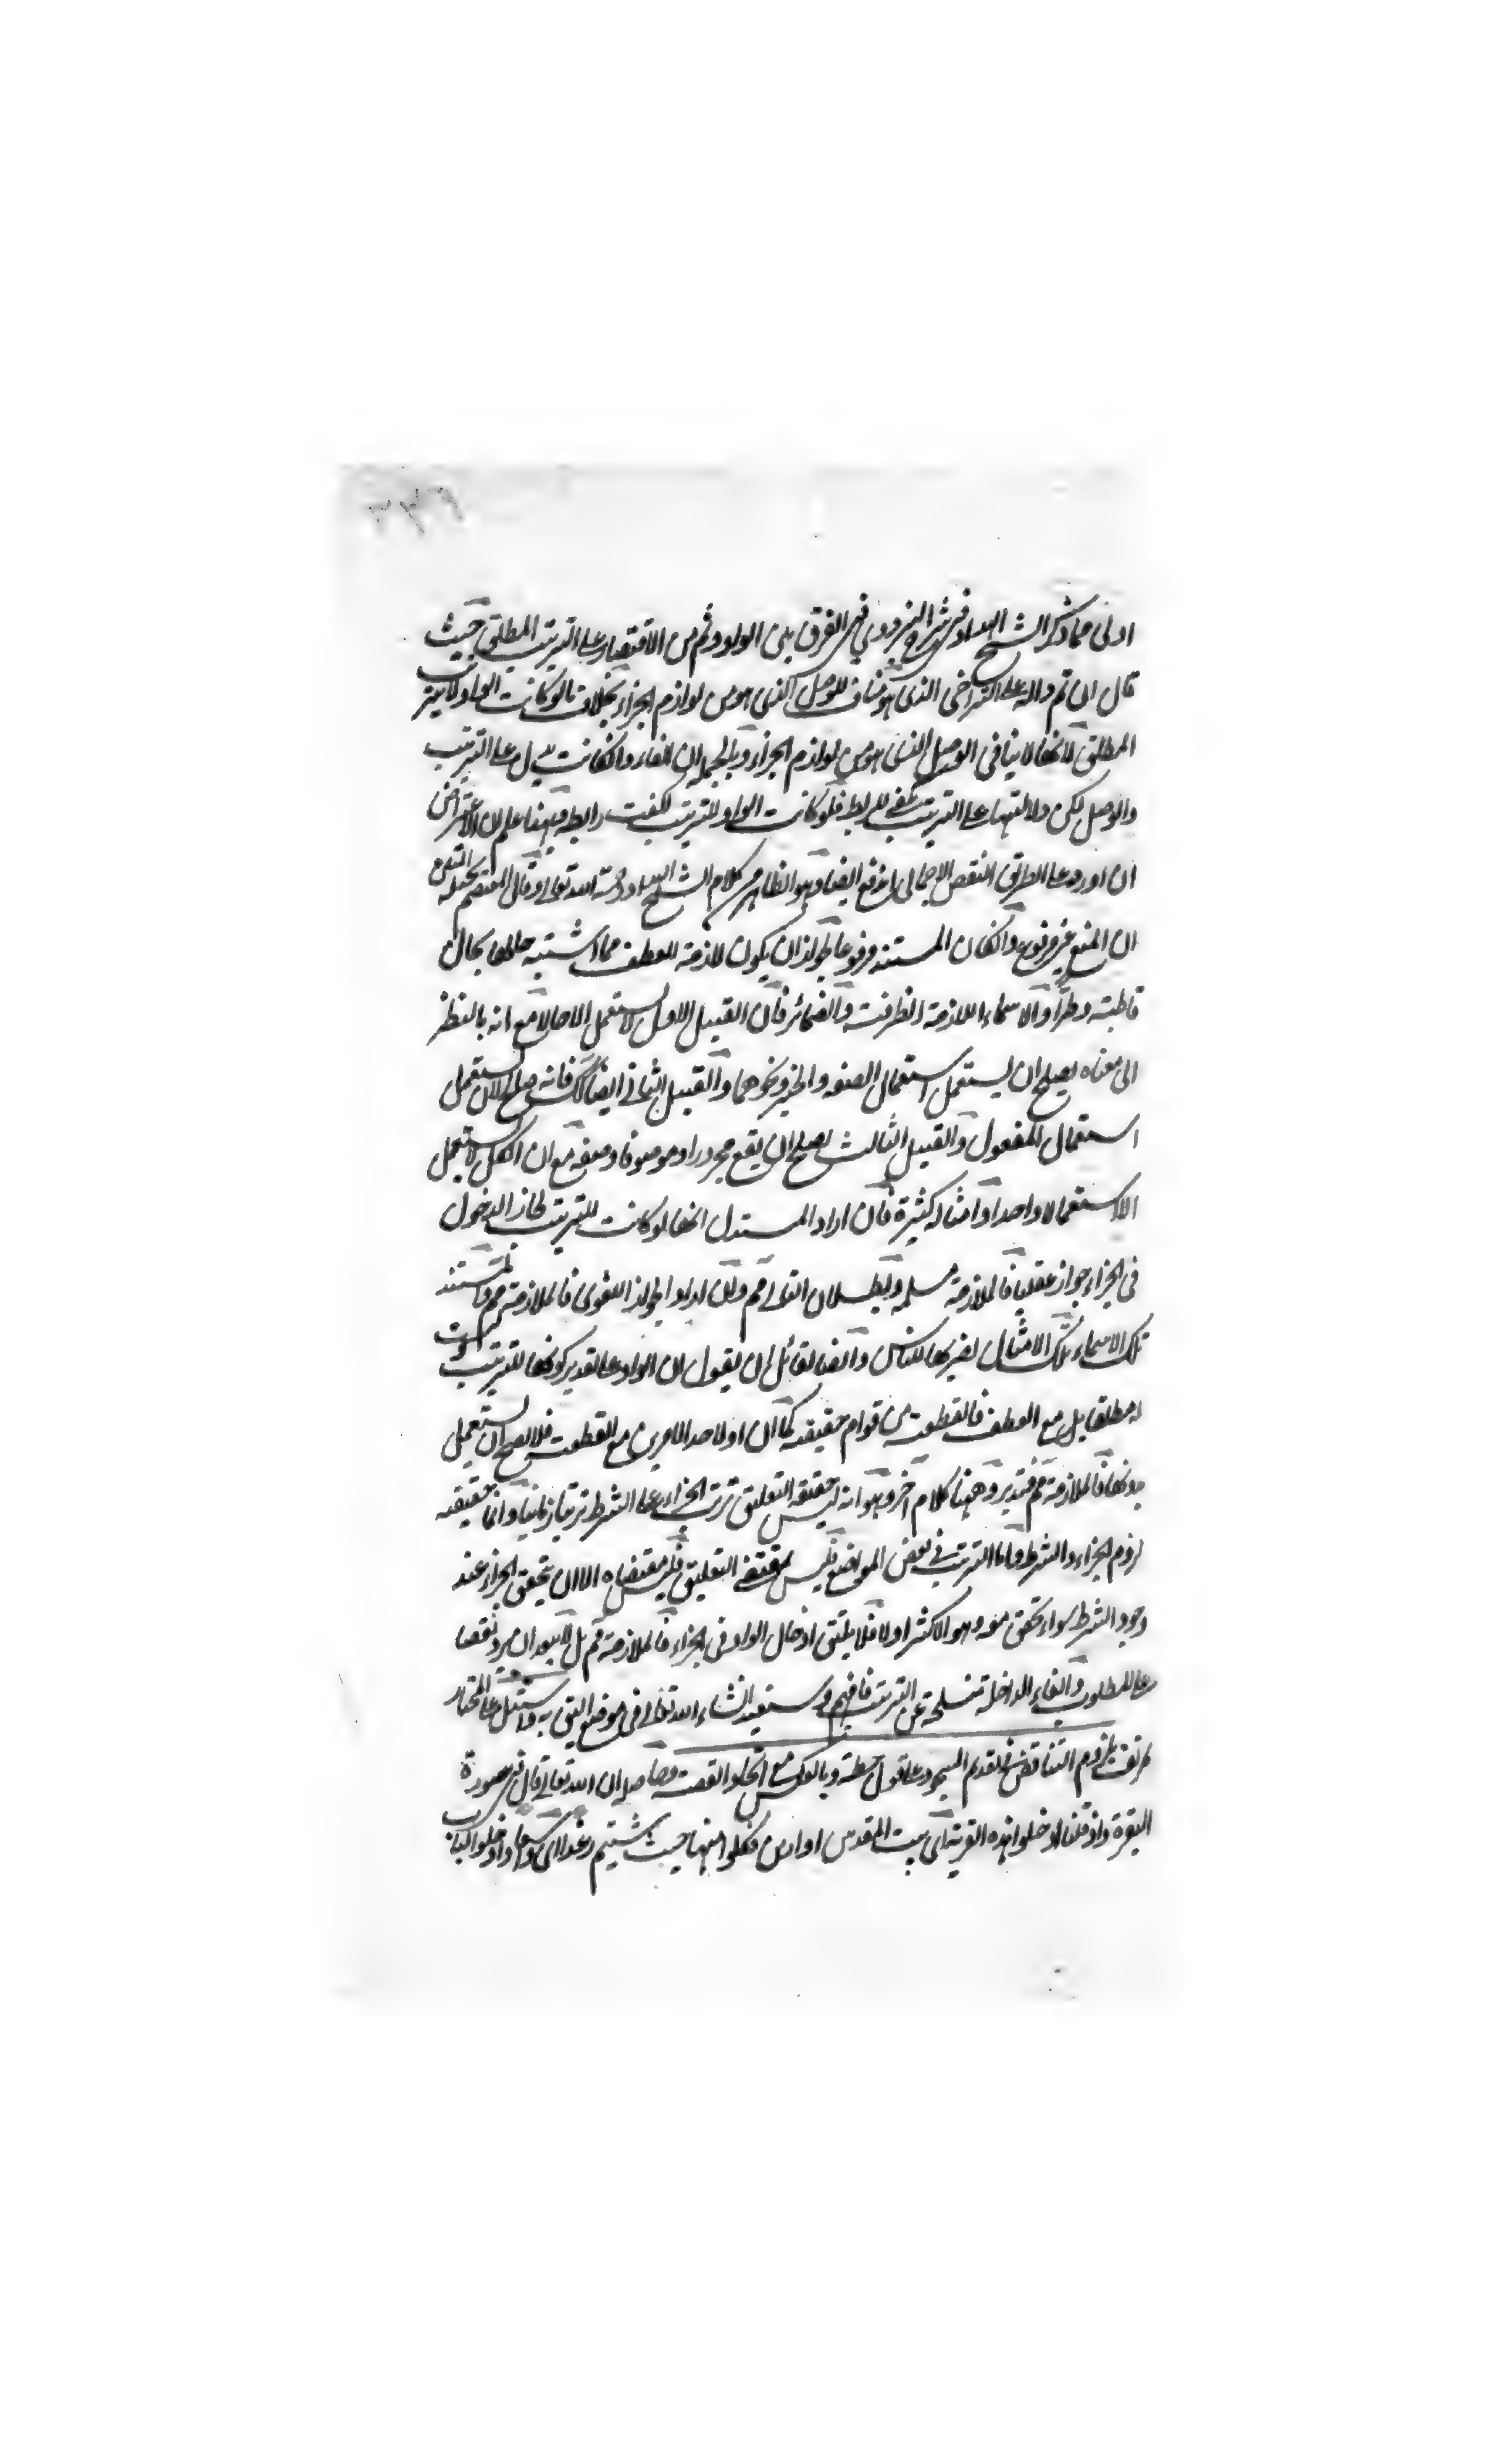 ٣٣٩
اولى مما ذكر الشيخ الهداد في شرح البزدوي في الفرق بين الواو وثم من الاقتصار على الترتيب المطلق حيث
قال ان ثم دالة على التراخي الذي هو مناف للوصل الذي هو من لوازم الجزاء بخلاف ما لو كانت الواو للترتيب
المطلق لانها لا ينافي الوصل الذي هو من لوازم الجزاء وبالجملة ان الفاء وان كانت يدل على الترتيب
والوصل لكن دلالتها على الترتيب تكفي للربط فلو كانت الواو للترتيب لكفت رابطة وبهذا علم ان الاعتراض
ان اورد على الطريق النقض الاجمالي اندفع ايضا وهو الظاهر من كلام الشيخ الهداد رحمة الله تعالى وقال المعتصم بحبله المتين
ان المنع غير مرفوع وان كان المستند مرفوعا لجواز ان يكون لازمة للعطف مما اشتبه حالها بحال
قاطبة وطرا والاسماء اللازمة الظرفية والضمائر فان القبيل الاول لا يستعمل الا حالا مع انه بالنظر
الى معناه يصلح ان يستعمل استعمال الصفة والخبر ونحوهما والقبيل الثاني ايضا كك فانه يصلح لان يستعمل
استعمال المفعول والقبيل الثالث يصلح ان يقع مجرورا وموصوفا وصفة مع ان الكل لا يستعمل
الا استعمالا واحدا وامثاله كثيرة فان اراد المستدل انها لو كانت للترتيب لجاز الدخول
في الجزاء جوازا عقليا فالملازمة مسلمة وبطلان التالي مم وان اراد الجواز اللغوي فالملازمة مم والمستند
تلك الاسماء تلك الامثال نضربها للناس وايضا لقائل ان يقول ان الواو على تقدير كونها للترتيب ليست
له مطلقا بل مع العطف فالقطعية من قوام حقيقته كما ان او لاحد الامرين مع القطعية فلا يصح ان يستعمل
بدونها فالملازمة مم فتدبر وههنا كلام آخر وهو انه ليس حقيقة التعليق ترتب الجزاء على الشرط ترتبا زمانيا وانما حقيقته
لزوم الجزاء والشرط واما الترتب في بعض المواضع فليس بمقتضى التعليق فليس مقتضاه الا ان تحقق الجزاء عند
وجود الشرط سواء تحقق معه وهو الاكثر او لا فلا يليق ادخال الواو في الجزاء فالملازمة مم بل لا يبعد ان يرد نقضا
على المطلوب والفاء الداخلة تنسلخ عن الترتيب فافهم وستعيد ان شاء الله تعالى في موضع اليق به واستدل على المختار
مزيف بلزوم التناقض في تقديم السجود على قول حطة وبالعكس مع اتحاد القصة وحاصله ان الله تعالى قال في سورة
البقرة واذ قلنا ادخلوا هذه القرية اي بيت المقدس او اريحا فكلوا منها حيث شئتم رغدا اي واسعا وادخلوا الباب